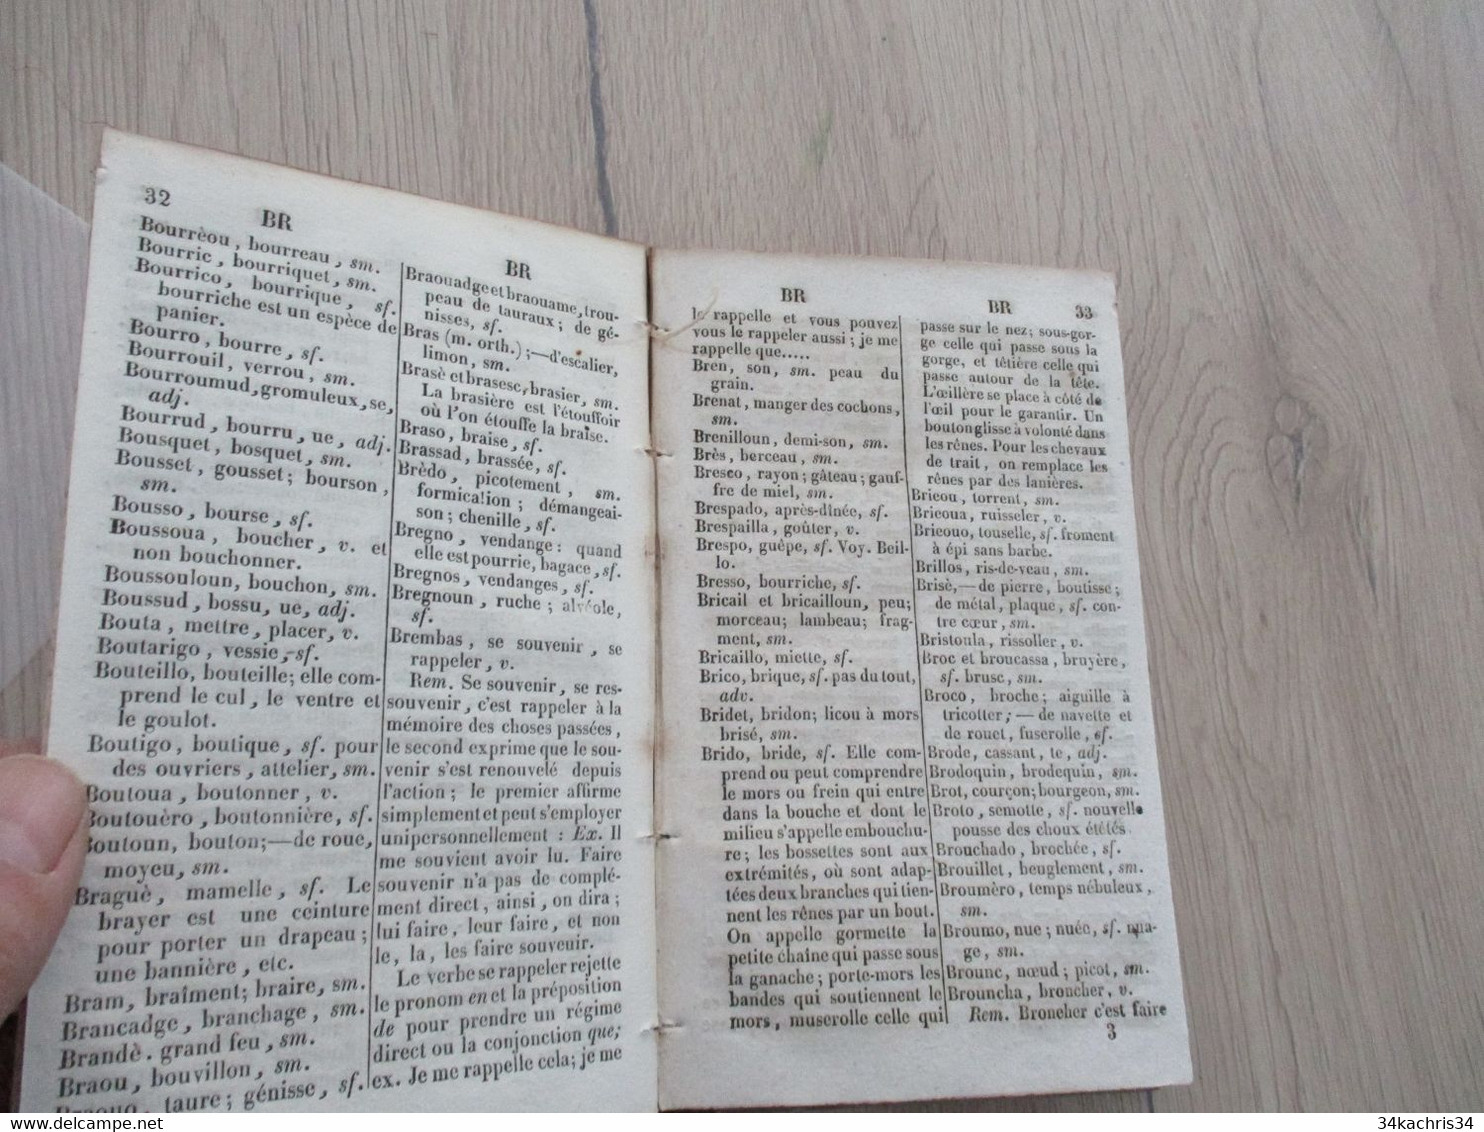 32
BR
Bourrèou, bourreau, sm.
Bourric, bourriquet, sm.
Bourrico, bourrique, sf.
bourriche est un espèce de
panier.
Bourro, bourre, sf.
Bourrouil, verrou, sm.
Bourroumud, gromuleux, se,
adj.
Bourrud, bourru, ue, adj.
Bousquet, bosquet, sm.
Bousset, gousset; bourson,
sm.
Bousso, bourse, sf.
Boussoua, boucher, v. et
non bouchonner.
Boussouloun, bouchon, sm.
Boussud, bossu, ue, adj.
Bouta, mettre, placer, v.
Boutarigo, vessie, sf.
Bouteillo, bouteille; elle com-
prend le cul, le ventre et
le goulot.
Boutigo, boutique, sf. pour
des ouvriers, attelier, sm.
Boutoua, boutonner, v.
Boutouèro, boutonnière, sf.
Boutoun, bouton;—de roue,
moyeu, sm.
Braguè, mamelle, sf. Le
brayer est une ceinture
pour porter un drapeau;
une bannière, etc.
Bram, braîment; braire, sm.
Brancadge, branchage, sm.
Brandè. grand feu, sm.
Braou, bouvillon, sm.
Braouo, taure; génisse, sf.
BR
Braouadge et braouame, trou-
peau de tauraux; de gé-
nisses, sf.
Bras (m. orth.);—d'escalier,
limon, sm.
Brasè et brasesc, brasier, sm.
La brasière est l'étouffoir
où l'on étouffe la braise.
Braso, braise, sf.
Brassad, brassée, sf.
Brèdo, picotement, sm.
formication; démangeai-
son; chenille, sf.
Bregno, vendange: quand
elle est pourrie, bagace, sf.
Bregnos, vendanges, sf.
Bregnoun, ruche; alvéole,
sf.
Brembas, se souvenir, se
rappeler, v.
Rem. Se souvenir, se res-
souvenir, c'est rappeler à la
mémoire des choses passées,
le second exprime que le sou-
venir s'est renouvelé depuis
l'action; le premier affirme
simplement et peut s'employer
unipersonnellement: Ex. Il
me souvient avoir lu. Faire
souvenir n'a pas de complé-
ment direct, ainsi, on dira;
lui faire, leur faire, et non
le, la, les faire souvenir.
Le verbe se rappeler rejette
le pronom en et la préposition
de pour prendre un régime
direct ou la conjonction que;
ex. Je me rappelle cela; je me
BR
le rappelle et vous pouvez
vous le rappeler aussi; je me
rappelle que.....
Bren, son, sm. peau du
grain.
Brenat, manger des cochons,
sm.
Brenilloun, demi-son, sm.
Brès, berceau, sm.
Bresco, rayon; gâteau; gauf-
fre de miel, sm.
Brespado, après-dînée, sf.
Brespailla, goûter, v.
Brespo, guêpe, sf. Voy. Beil-
lo.
Bresso, bourriche, sf.
Bricail et bricailloun, peu;
morceau; lambeau; frag-
ment, sm.
Bricaillo, miette, sf.
Brico, brique, sf. pas du tout,
adv.
Bridet, bridon; licou à mors
brisé, sm.
Brido, bride, sf. Elle com-
prend ou peut comprendre
le mors ou frein qui entre
dans la bouche et dont le
milieu s'appelle embouchu-
re; les bossettes sont aux
extrémités, où sont adap-
tées deux branches qui tien-
nent les rênes par un bout.
On appelle gormette la
petite chaîne qui passe sous
la ganache; porte-mors les
bandes qui soutiennent le
mors, muserolle celle qui
BR
33
passe sur le nez; sous-gor-
ge celle qui passe sous la
gorge, et têtière celle qui
passe autour de la tête.
L'œillère se place à côté de
l'œil pour le garantir. Un
bouton glisse à volonté dans
les rênes. Pour les chevaux
de trait, on remplace les
rênes par des lanières.
Bricou, torrent, sm.
Bricoua, ruisseler, v.
Bricouo, touselle, sf. froment
à épi sans barbe.
Brillos, ris-de-veau, sm.
Brisè,—de pierre, boutisse;
de métal, plaque, sf. con-
tre cœur, sm.
Bristoula, rissoller, v.
Broc et broucassa, bruyère,
sf. brusc, sm.
Broco, broche; aiguille à
tricotter;—de navette et
de rouet, fuserolle, sf.
Brode, cassant, te, adj.
Brodoquin, brodequin, sm.
Brot, courçon; bourgeon, sm.
Broto, semotte, sf. nouvelle
pousse des choux étêtés.
Brouchado, brochée, sf.
Brouillet, beuglement, sm.
Broumèro, temps nébuleux,
sm.
Broumo, nue; nuée, sf. nua-
ge, sm.
Brounc, nœud; picot, sm.
Brouncha, broncher, v.
Rem. Broncher c'est faire
3
34kachris34
34kachris34